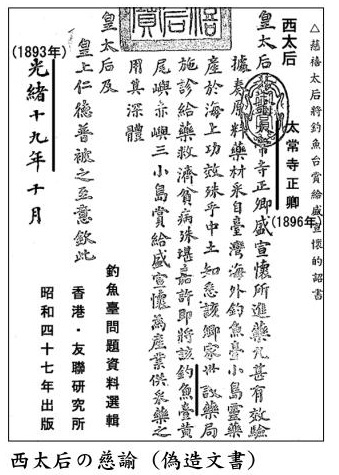 △慈禧太后將釣魚台賞給盛宣懷的詔書
西太后
太常寺正卿
(1896年)
皇太后 常寺正卿盛宣懷所進藥丸甚有效驗
據奏原料藥材采自臺灣海外釣魚臺小島靈藥
產於海上功效殊乎中土知悉該卿家世設藥局
施診給藥救濟貧病殊堪嘉許即將該釣魚臺黃
尾嶼赤嶼三小島賞給盛宣懷為產業供采藥之
用其深體
皇太后及
皇上仁德普被之至意欽此
(1893年)
光緒十九年十月
釣魚臺問題資料選輯
香港・友聯研究所
昭和四十七年出版
西太后の慈諭（偽造文書）